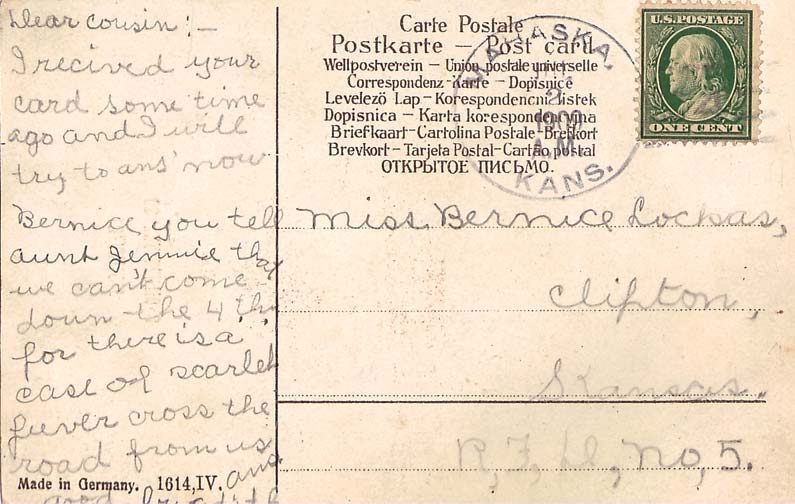 Dear cousin:—
I recived your
card some time
ago and I will
try to ans' now
Bernice you tell
aunt Jennie that
we can't come
down the 4 th
for there is a
case of scarlet
fuever cross the
road from us
ans.
good
Made in Germany. 1614, IV.
Carte Postale
Postkarte — Post card
Weltpostverein – Union postale universelle
Correspondenz-Karte – Dopisnice
Levelező Lap – Korespondencni listek
Dopisnica – Karta korespondencyjna
Briefkaart – Cartolina Postale – Brefkort
Brevkort – Tarjeta Postal – Cartão postal
ОТКРЫТОЕ ПИСЬМО.
MAHASKA,
2
1909
A.M.
KANS.
U.S. POSTAGE
ONE CENT
Miss Bernice Lockas,
Clifton,
Kansas.
R, F, D, No, 5.